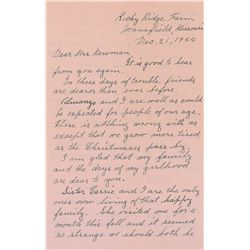 Rocky Ridge Farm
Mansfield, Missouri
Dec. 21, 1944
Dear Mrs Newman
It is good to hear
from you again.
In these days of trouble, friends
are dearer than ever before
Almanzo and I are well as could
be expected for people of our age.
There is nothing wrong with us
except that we grow more tired
as the Christmases pass by.
I am glad that my family
and the days of my girlhood
are dear to you.
Sister Carrie and I are the only
ones now living of that happy
family. She visited me for a
month this fall and it seemed
so strange we should both be